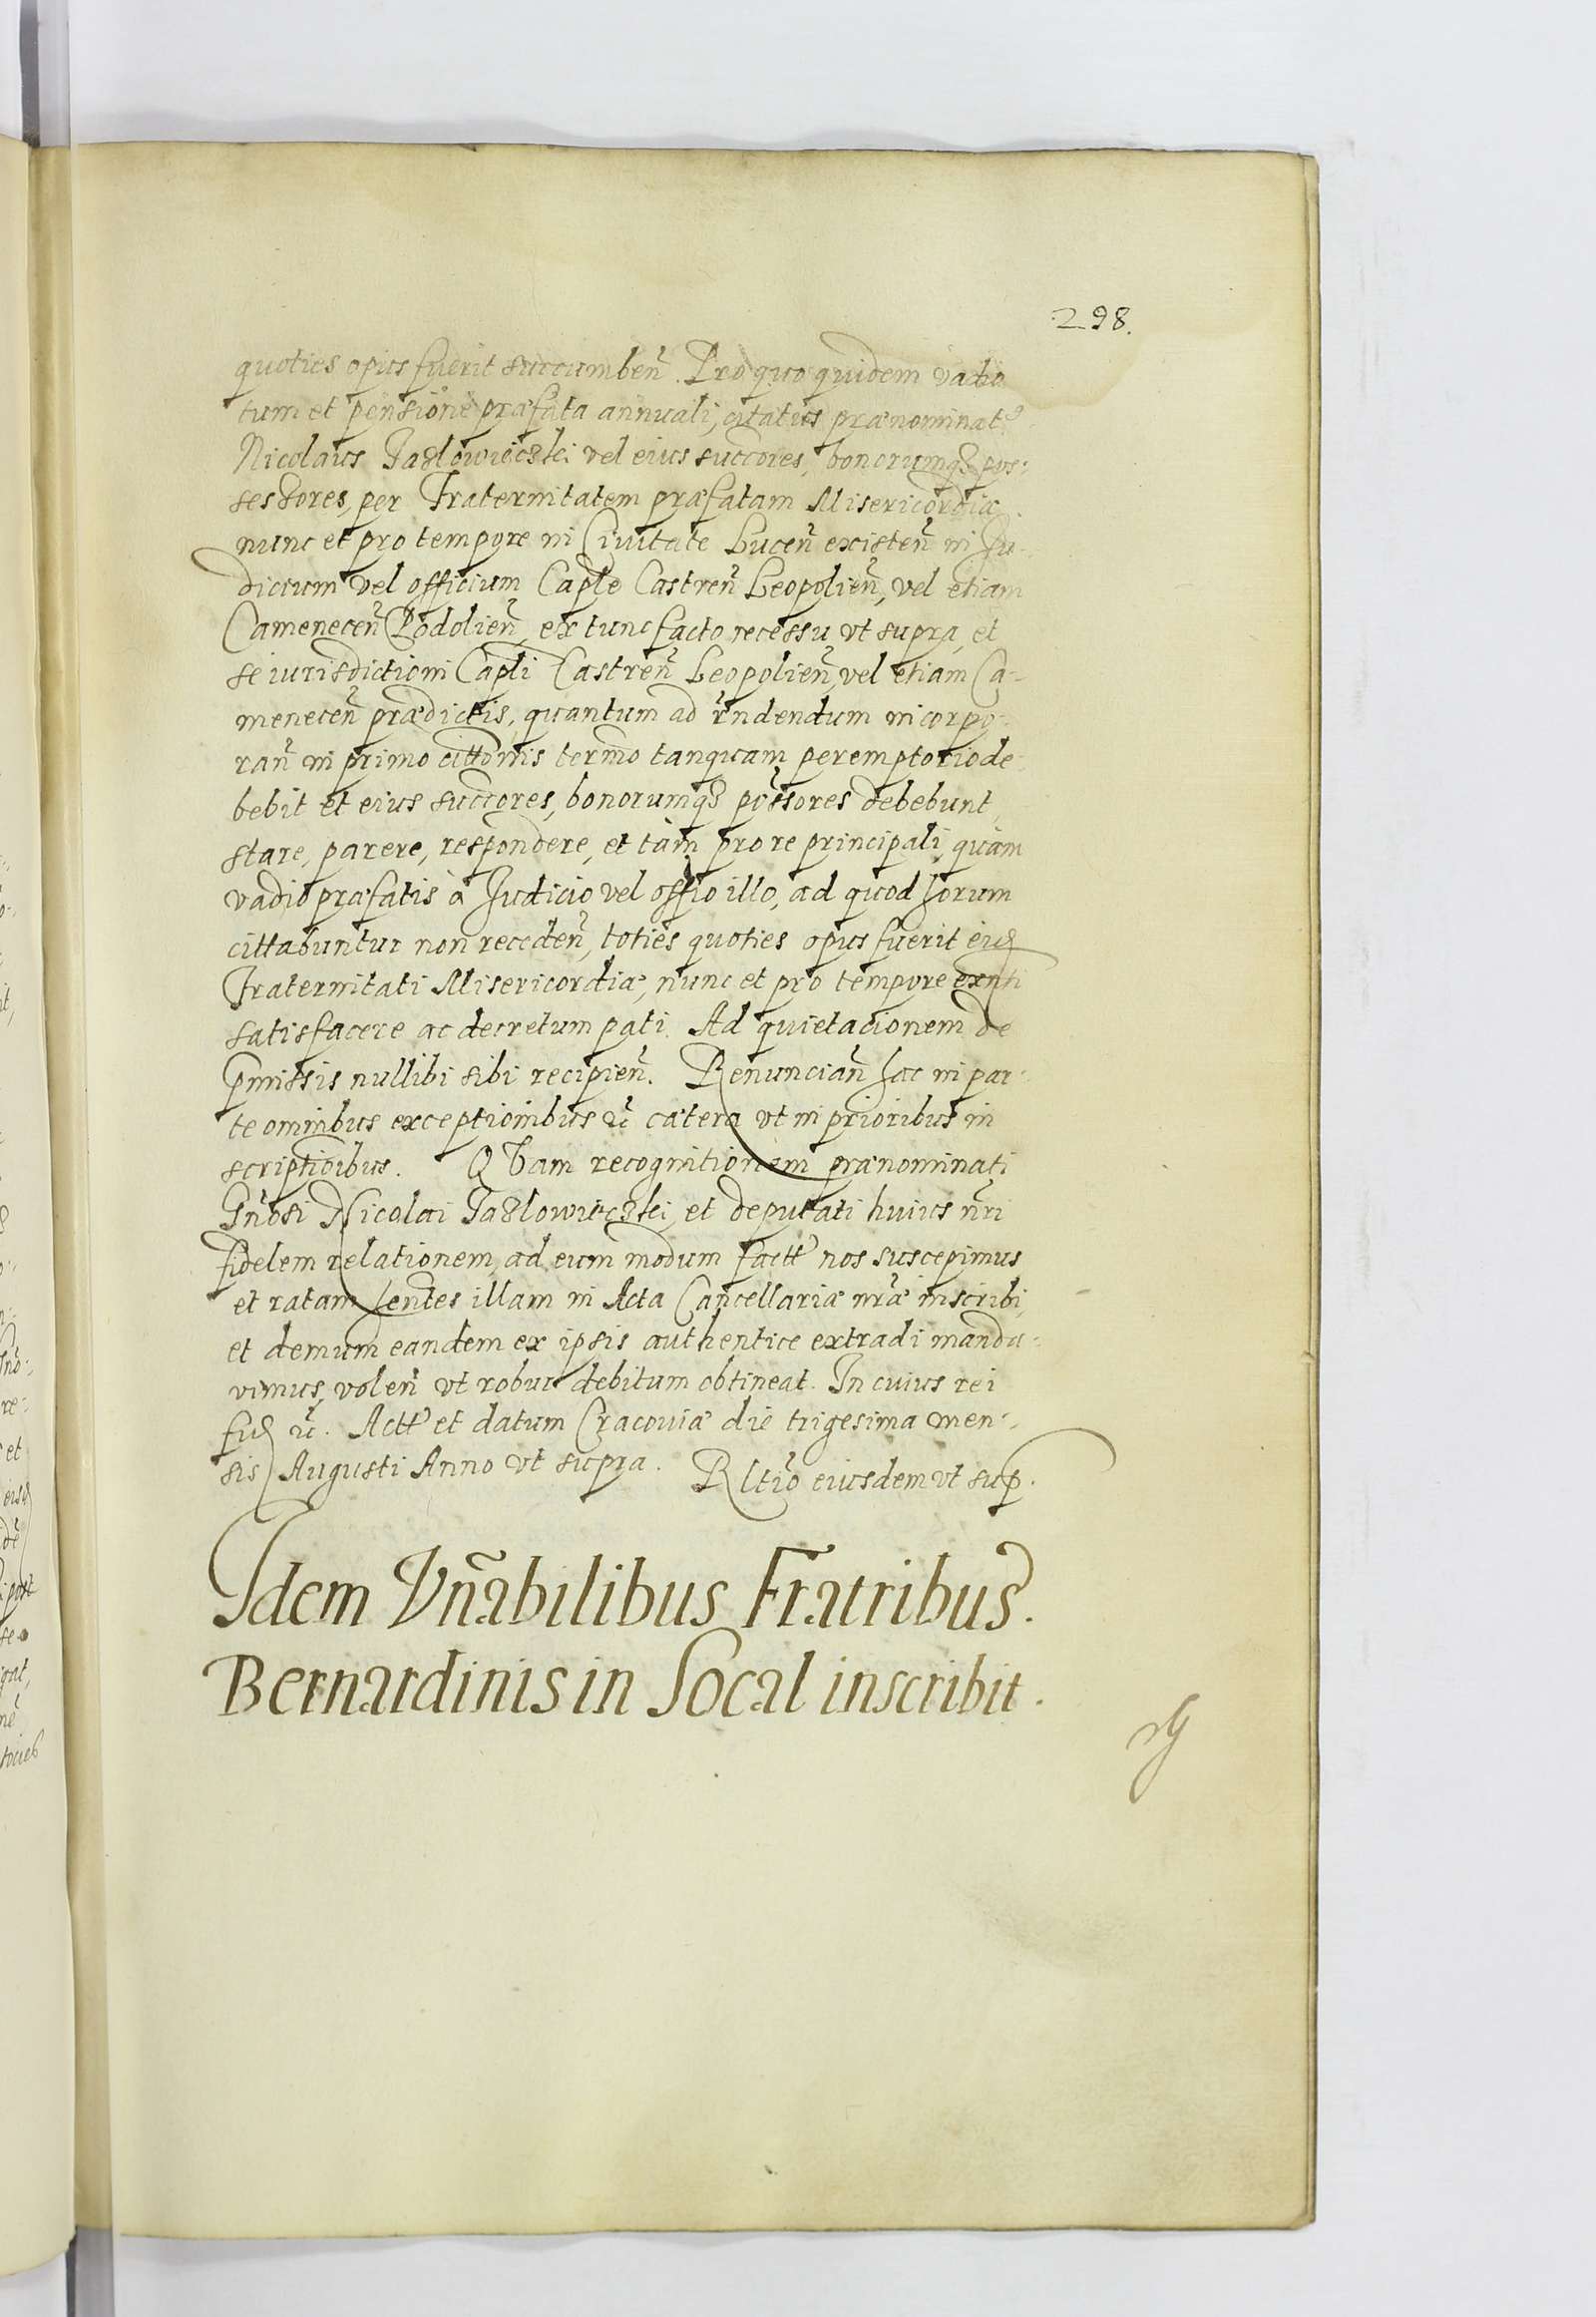 298.
quoties opus fuerit succumbeñ. Pro quo quidem vadio
tum et pensione præfata annuali, citatus prænominat9
Nicolaus Jazlowieczki vel eius succores, bonorumqz pos-
sessores, per Fraternitatem præfatam Misericordiæ
nunc et pro tempore in Civitate Luceñ existeñ in Ju-
dicium vel officium Caple Castreñ Leopolieñ, vel etiam
Cameneceñ Podolieñ, ex tunc facto recessu vt supra, et
se iurisdictioni Capli Castreñ Leopolieñ, vel etiam Ca-
meneceñ prædictis, quantum ad rñdendum incorpo-
rañ in primo cittõnis termõ tanquam peremptorio de-
bebit et eius succores, bonorumqz põssores debebunt
stare, parere, respondere, et tàm pro re principali quàm
vadio præfatis à Judicio vel offio illo, ad quod horum
cittabuntur non recedeñ, toties quoties opus fuerit eid
Fraternitati Misericordiæ, nunc et pro tempore exnti
satisfacere ac decretum pati. Ad quietacionem de
pmissis nullibi sibi recipieñ. Renunciañ hac in par-
te omnibus exceptionibus &c cætera vt in prioribus in
scriptioibus. QVam recognitionem prænominati
Gñosi Nicolai Jazlowieczki, et deputati huius ñri
fidelem relationem, ad eum modum factt nos suscepimus
et ratam hentes illam in Acta Cancellariæ nræ inscribi,
et demum eandem ex ipsis authentice extradi manda-
vimus, voleñ vt robur debitum obtineat. In cuius rei
fid &c. Actt et datum Cracoviæ die trigesima men-
sis Augusti Anno vt supra. Rltio eiusdem vt sup.
Idem Vñabilibus Fratribus.
Bernardinis in Socal inscribit.